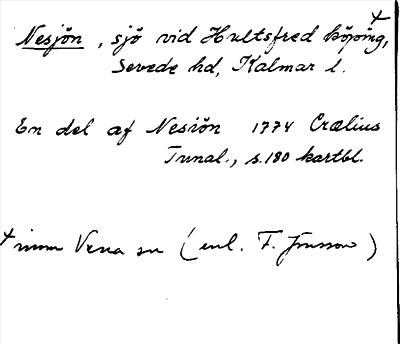 Nesjön, sjö vid Hultsfred köping,+
Sevede hd, Kalmar l.
En del af Nesiön 1774 Crælius
Tunal., s.180 kartbl.
+ inom Vena sn (enl. F. Jonsson)